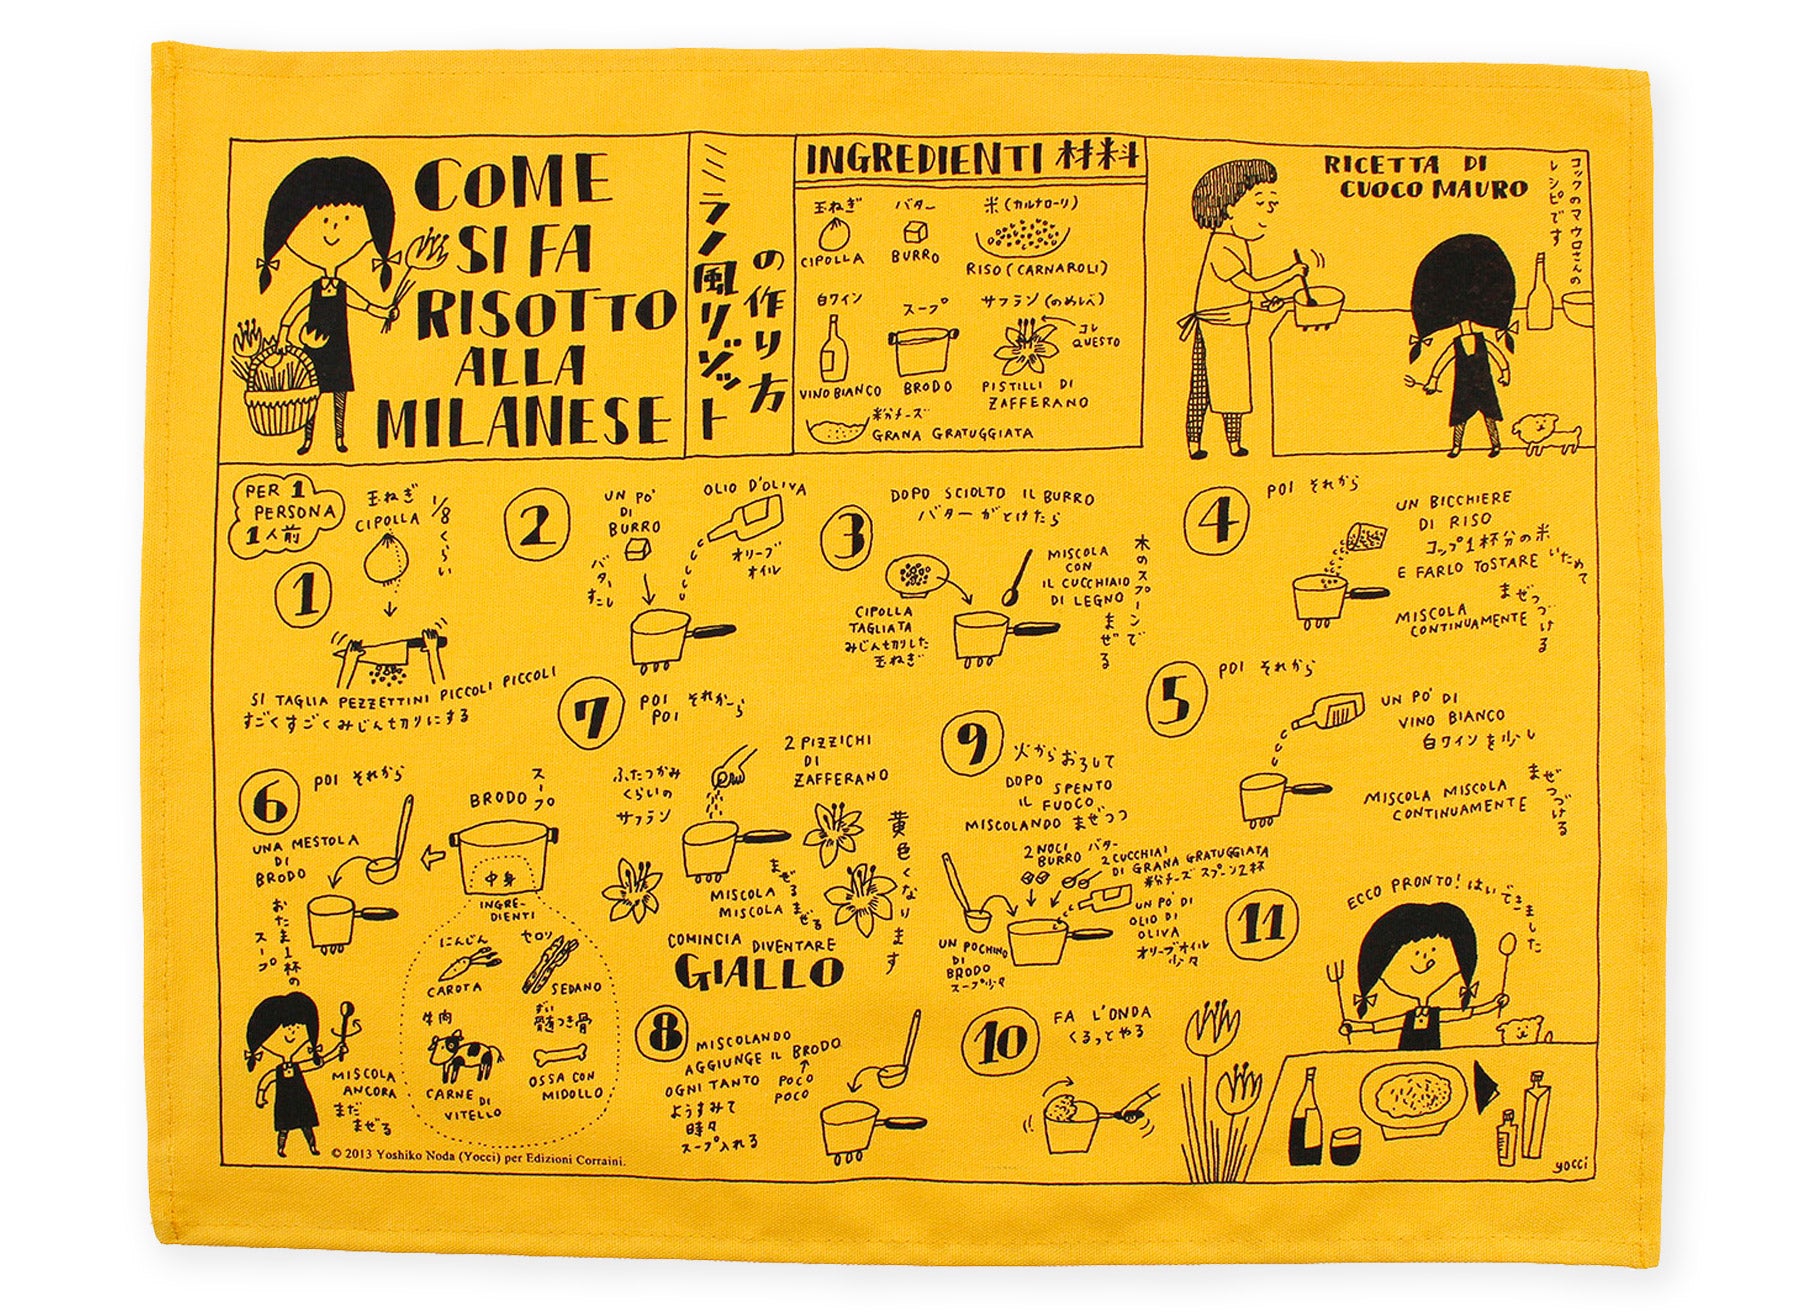 COME
SI FA
RISOTTO
ALLA
MILANESE
ミラノ風リゾット
の作り方
INGREDIENTI 材料
玉ねぎ
CIPOLLA
バター
BURRO
米(カルナローリ)
RISO (CARNAROLI)
白ワイン
VINO BIANCO
スープ
BRODO
サフラン(のめしべ)
コレ
QUESTO
PISTILLI DI
ZAFFERANO
粉チーズ
GRANA GRATUGGIATA
RICETTA DI
CUOCO MAURO
コックのマウロさんの
レシピです
PER 1
PERSONA
1人前
1
玉ねぎ
CIPOLLA
1/8くらい
SI TAGLIA PEZZETTINI PICCOLI PICCOLI
すごくすごくみじん切りにする
2
UN PO'
DI
BURRO
バター
すこし
OLIO D'OLIVA
オリーブ
オイル
3
DOPO SCIOLTO IL BURRO
バターがとけたら
CIPOLLA
TAGLIATA
みじん切りした
玉ねぎ
MISCOLA
CON
IL CUCCHIAIO
DI LEGNO
木のスプーンで
まぜる
4
POI それから
UN BICCHIERE
DI RISO
コップ1杯分の米
E FARLO TOSTARE いためて
MISCOLA
CONTINUAMENTE
まぜつづける
5
POI それから
UN PO' DI
VINO BIANCO
白ワインを少し
MISCOLA MISCOLA
CONTINUAMENTE
まぜつづける
6
POI それから
UNA MESTOLA
DI
BRODO
おたま1杯の
スープ
BRODO スープ
中身
INGRE-
DIENTI
にんじん
CAROTA
セロリ
SEDANO
牛肉
CARNE DI
VITELLO
ずい
髄つき骨
OSSA CON
MIDOLLO
MISCOLA
ANCORA
まだ
まぜる
7
POI それから
POI
ふたつかみ
くらいの
サフラン
2 PIZZICHI
DI
ZAFFERANO
MISCOLA まぜる
MISCOLA まぜる
COMINCIA DIVENTARE
GIALLO
黄色くなります
8
MISCOLANDO
AGGIUNGE IL BRODO
OGNI TANTO POCO
POCO
ようすみて
時々
スープ入れる
9
火からおろして
DOPO
SPENTO
IL FUOCO
MISCOLANDO まぜつつ
2 NOCI バター
BURRO
2 CUCCHIAI
DI GRANA GRATUGGIATA
粉チーズ スプーン2杯
UN PO' DI
OLIO DI
OLIVA
オリーブオイル
少々
UN POCHINO
DI
BRODO
スープ少々
10
FA L'ONDA
くるってやる
11
ECCO PRONTO! はいできました
yocci
© 2013 Yoshiko Noda (Yocci) per Edizioni Corraini.